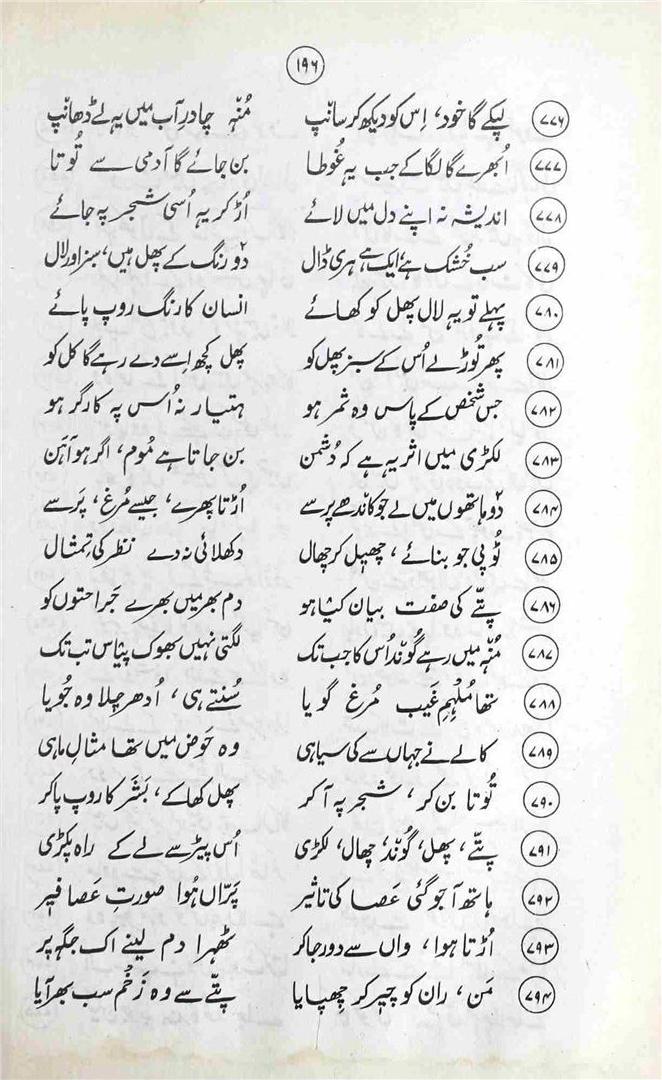 ۱۹۶
۷۷۶ لپکے گا خود، اِس کو دیکھ کر سانپ مُنہ چادرِ آب میں یہ لے ڈھانپ
۷۷۷ اُبھرے گا لگا کے جب یہ غُوطا بن جائے گا آدمی سے تُوتا
۷۷۸ اندیشہ نہ اپنے دل میں لائے اُڑ کر یہ اُسی شجر پہ جائے
۷۷۹ سب خُشک ہے، ایک ہے ہری ڈال دو رنگ کے پھل ہیں، سبز اور لال
۷۸۰ پہلے تو یہ لال پھل کو کھائے انسان کا رنگ روپ پائے
۷۸۱ پھر توڑے اُس کے سبز پھل کو پھل کچھ اِسے دے رہے گا کل کو
۷۸۲ جس شخص کے پاس وہ ثمر ہو ہتیار نہ اُس پہ کارگر ہو
۷۸۳ لکڑی میں اثر یہ ہے کہ دُشمن بن جاتا ہے مُوم، اگر ہو آہَن
۷۸۴ دو ہاتھوں میں لے جو کاندھے پر سے اُڑتا پھرے، جیسے مُرغ، پَر سے
۷۸۵ ٹوپی جو بنائے، چھیل کر چھال دکھلائی نہ دے نظر کی تمثال
۷۸۶ پتّے کی صفت بیان کیا ہو دم بھر میں بھرے جَراحتوں کو
۷۸۷ مُنہ میں رہے گوند اُس کا جب تک لگتی نہیں بھوک پیاس تب تک
۷۸۸ تھا مُلہِمِ غَیب مُرغِ گویا سُنتے ہی، اُدھر چلا وہ جُویا
۷۸۹ کالے نے جہاں سے کی سیاہی وہ حَوض میں تھا مثالِ ماہی
۷۹۰ تُوتا بن کر، شجر پہ آ کر پھل کھا کے، بَشَر کا روپ پا کر
۷۹۱ پتّے، پھل، گوند، چھال، لکڑی اُس پیڑ سے لے کے راہ پکڑی
۷۹۲ ہاتھ آ جو گئی عَصا کی تاثیر پَرّاں ہُوا صورتِ عَصافیر
۷۹۳ اُڑتا ہوا، واں سے دور جا کر ٹھہرا دم لینے اک جگہ پر
۷۹۴ مَن، ران کو چیر کر چھپایا پتّے سے وہ زَخْم سب بھر آیا